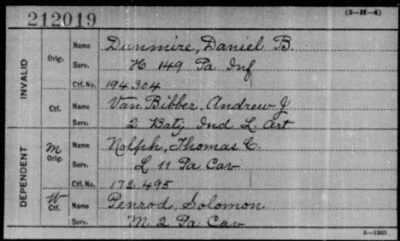 212019 (3-H-4)
INVALID Orig. Name Dunmire, Daniel B.
Serv. H 149 Pa Inf
Ctf. No. 194304
Ctf. Name Van Bibber, Andrew J
Serv. 2 Baty Ind L Art
DEPENDENT M Orig. Name Nolph, Thomas C.
Serv. L 11 Pa Cav
Ctf. No. 172.495
W Ctf. Name Penrod, Solomon
Serv. M 2 Pa Cav